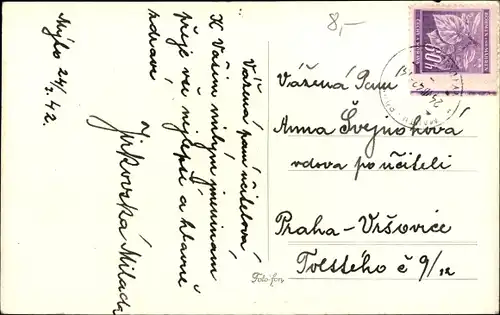 8,-
Mýto 24/7.42.
Vážená paní učitelová!
K Vašim milým jmeninám
přeje vše nejlepší a hlavně
zdraví
Jirkovská Milada
Vážená Paní
Anna Švejnohová
vdova po učiteli
Praha-Vršovice
Tolstého č 9/12
Fotofon